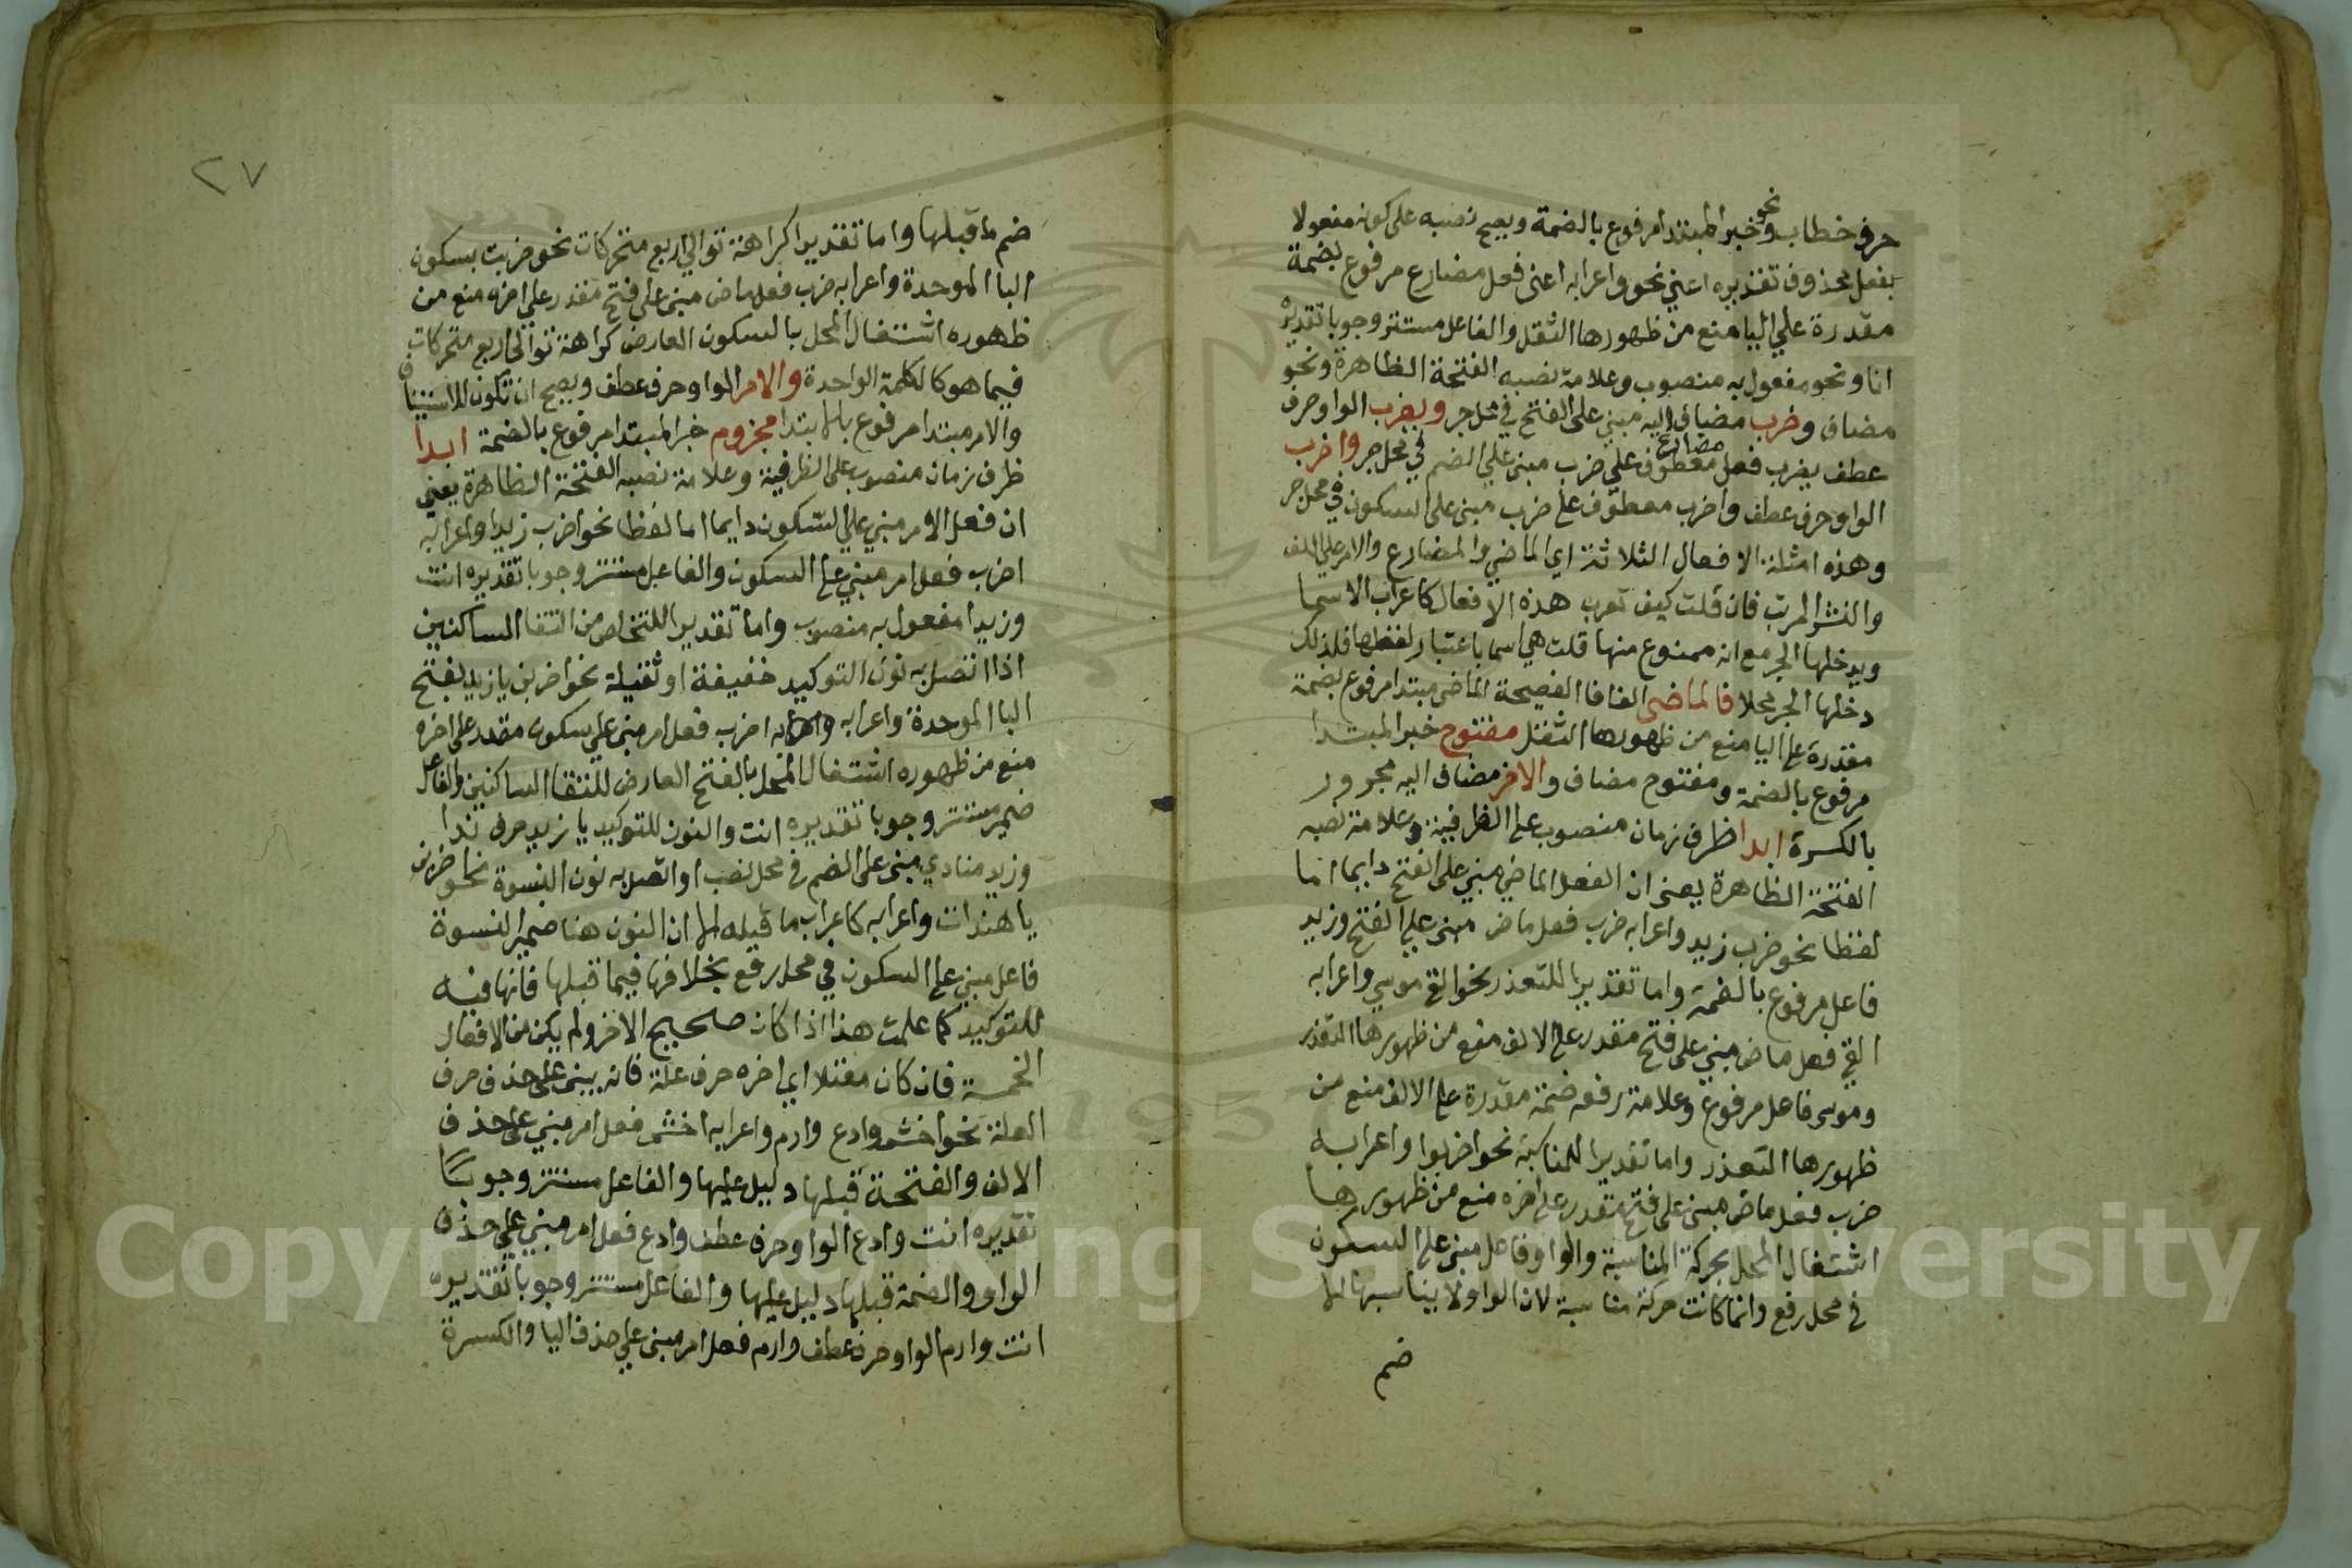 حرف خطاب ونحو خبر المبتدا مرفوع بالضمة ويصح نصبه على كونه مفعولا
بفعل محذوف تقديره اعني نحو واعرابه اعني فعل مضارع مرفوع بضمة
مقدرة علي اليا منع من ظهورها الثقل والفاعل مستتر وجوبا تقديره
انا ونحو مفعول به منصوب وعلامة نصبه الفتحة الظاهرة ونحو
مضاف وضرب مضاف اليه مبني على الفتح في محل جر ويضرب الواو حرف
عطف يضرب فعل مضارع معطوف علي ضرب مبني علي الضم في محل جر واضرب
الواو حرف عطف واضرب معطوف على ضرب مبني على السكون في محل جر
وهذه امثلة الافعال الثلاثة اي الماضي والمضارع والامر علي اللف
والنشر المرتب فان قلت كيف تعرب هذه الافعال كاعراب الاسما
ويدخلها الجر مع انه ممنوع منها قلت هي اسما باعتبار لفظها فلذلك
دخلها الجر محلا فالماضي الفا فا الفصيحة الماضي مبتدا مرفوع بضمة
مقدرة على اليا منع من ظهورها الثقل مفتوح خبر المبتدا
مرفوع بالضمة ومفتوح مضاف والاخر مضاف اليه مجرور
بالكسرة ابدا ظرف زمان منصوب على الظرفية وعلامة نصبه
الفتحة الظاهرة يعني ان الفعل الماضي مبني على الفتح دايما اما
لفظا نحو ضرب زيد واعرابه ضرب فعل ماض مبني علي الفتح وزيد
فاعل مرفوع بالضمة واما تقديرا للتعذر نحو القي موسي واعرابه
القي فعل ماض مبني على فتح مقدر على الالف منع من ظهورها التعذر
وموسى فاعل مرفوع وعلامة رفعه ضمة مقدرة على الالف منع من
ظهورها التعذر واما تقديرا للمناسبة نحو اضربوا واعرابه
ضرب فعل ماض مبني على فتح مقدر على اخره منع من ظهورها
اشتغال المحل بحركة المناسبة والواو فاعل مبني على السكون
في محل رفع وانما كانت حركة مناسبة لان الواو لا يناسبها الا
ضم
٢٧
ضم ما قبلها واما تقديرا كراهة توالي اربع متحركات نحو ضربت بسكون
البا الموحدة واعرابه ضرب فعل ماض مبني على فتح مقدر علي اخره منع من
ظهوره اشتغال المحل بالسكون العارض كراهة توالي اربع متحركات
فيما هو كالكلمة الواحدة والامر الواو حرف عطف ويصح ان تكون للاستيناف
والامر مبتدا مرفوع بالابتدا مجزوم خبر المبتدا مرفوع بالضمة ابدا
ظرف زمان منصوب على الظرفية وعلامة نصبه الفتحة الظاهرة يعني
ان فعل الامر مبني علي السكون دايما اما لفظا نحو اضرب زيدا واعرابه
اضرب فعل امر مبني على السكون والفاعل مستتر وجوبا تقديره انت
وزيدا مفعول به منصوب واما تقديرا للتخلص من التقا الساكنين
اذا اتصل به نون التوكيد خفيفة او ثقيلة نحو اضربن يا زيد بفتح
البا الموحدة واعرابه واعرابه اضرب فعل امر مبني علي سكون مقدر على اخره
منع من ظهوره اشتغال المحل بالفتح العارض لالتقا الساكنين والفاعل
ضمير مستتر وجوبا تقديره انت والنون للتوكيد يا زيد حرف ندا
وزيد منادي مبني على الضم في محل نصب او اتصل به نون النسوة نحو اضربن
يا هندات واعرابه كاعراب ما قبله الا ان النون هنا ضمير النسوة
فاعل مبني على السكون في محل رفع بخلافها فيما قبلها فانها فيه
للتوكيد كما علمت هذا اذا كان صحيح الاخر ولم يكن من الافعال
الخمسة فان كان معتلا اي اخره حرف علة فانه يبني على حذف حرف
العلة نحو اخش وادع وارم واعرابه اخش فعل امر مبني على حذف
الالف والفتحة قبلها دليل عليها والفاعل مستتر وجوبا
تقديره انت وادع الواو حرف عطف وادع فعل امر مبني علي حذف
الواو والضمة قبلها دليل عليها والفاعل مستتر وجوبا تقديره
انت وارم الواو حرف عطف وارم فعل امر مبني علي حذف اليا والكسرة
Copyright © King Saud University
195